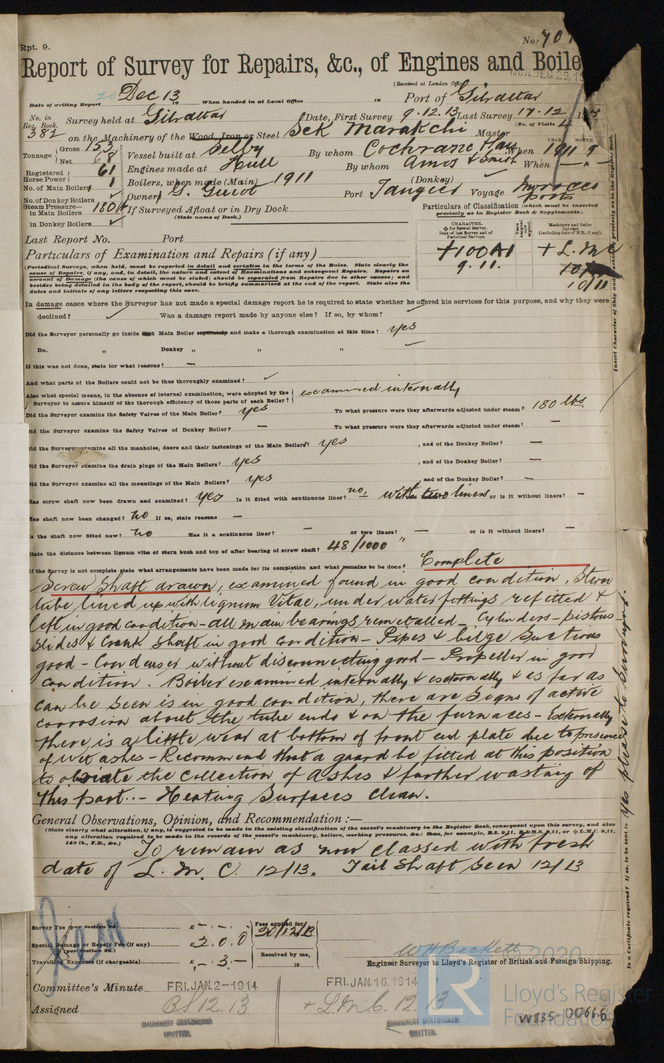 Rpt. 9.
No. 701
Report of Survey for Repairs, &c., of Engines and Boile
(Received at London Office
Date of writing Report 20 Dec 13 19 When handed in at Local Office 19 Port of Gibraltar
No. in Reg. Book. 382 Survey held at Gibraltar Date, First Survey 9.12.13 Last Survey 17.12.13
(No. of Visits
on the Machinery of the Wood, Iron or Steel Sek Marakchi Master
Tonnage Gross 153 Net 68 Vessel built at Selby By whom Cochrane, & Sons When 1911 9
Registered Horse Power 61 Engines made at Hull By whom Amos & Smith When
No. of Main Boilers 1 Boilers, when made (Main) 1911 (Donkey)
No. of Donkey Boilers Owners Port Tangier Voyage Morocco ports
Steam Pressure in Main Boilers 180 lb If Surveyed Afloat or in Dry Dock
(State name of Dock.)
in Donkey Boilers
Particulars of Classification (which must be inserted precisely as in Register Book & Supplements).
Last Report No. Port
+100A1 + L.M.C
9.11. 10/11
Particulars of Examination and Repairs (if any)
(Periodical Surveys, when held, must be reported in detail and seriatim in the terms of the Rules. State clearly the cause of Repairs, if any, and, in detail, the nature and extent of Examinations and subsequent Repairs. Repairs on account of Damage (the cause of which must be stated) should be separated from Repairs due to other causes; and besides being detailed in the body of the report, should be briefly summarised at the end of the report. State also the dates and initials of any letters respecting this case.
In damage cases where the Surveyor has not made a special damage report he is required to state whether he offered his services for this purpose, and why they were
declined? Was a damage report made by anyone else? If so, by whom?
Did the Surveyor personally go inside each Main Boiler separately and make a thorough examination at this time? yes
Do. " Donkey " " "
If this was not done, state for what reasons? —
And what parts of the Boilers could not be thus thoroughly examined?
Also what special means, in the absence of internal examination, were adopted by the Surveyor to assure himself of the thorough efficiency of those parts of each Boiler? examined internally
Did the Surveyor examine the Safety Valves of the Main Boiler? yes To what pressure were they afterwards adjusted under steam? 180 lbs
Did the Surveyor examine the Safety Valves of Donkey Boiler? — To what pressure were they afterwards adjusted under steam? —
Did the Surveyor examine all the manholes, doors and their fastenings of the Main Boilers? yes , and of the Donkey Boiler? —
Did the Surveyor examine the drain plugs of the Main Boilers? yes , and of the Donkey Boiler? —
Did the Surveyor examine all the mountings of the Main Boilers? yes , and of the Donkey Boiler? —
Has screw shaft now been drawn and examined? yes Is it fitted with continuous liner? no, with two liners or is it without liners? —
Has shaft now been changed? no If so, state reasons —
Is the shaft now fitted new? no Has it a continuous liner? — or two liners? — or is it without liners? —
State the distance between lignum vitæ of stern bush and top of after bearing of screw shaft? 48/1000"
If the Survey is not complete state what arrangements have been made for its completion and what remains to be done? Complete
Screw Shaft drawn, examined found in good condition, Stern
tube lined up with lignum Vitae, underwater fittings refitted &
left in good condition - all main bearings remetalled - Cylinders - pistons
Slides & Crank Shaft in good condition - Pipes & bilge Suctions
good - Condenser without disconnecting good - Propeller in good
condition. Boiler examined internally & externally & as far as
can be seen is in good condition, there are signs of active
corrosion about the tube ends & on the furnaces - Externally
there is a little wear at bottom of front end plate due to presence
of wet ashes - Recommend that a guard be fitted at this position
to obviate the collection of Ashes & further wasting of
this part. - Heating Surfaces clean.
General Observations, Opinion, and Recommendation:—
(State clearly what alteration, if any, is suggested to be made in the existing classification of the vessel's machinery in the Register Book, consequent upon this survey, and also any alteration required to be made in the records of the vessel's machinery, boilers, working pressures, &c.; thus, for example, B.S. 9,11, B.&M.S. 9,11, or L.M.C. 9,11, 140 lb., F.D., &c.)
To remain as now classed with fresh
date of L. M. C. 12/13. Tail Shaft Seen 12/13
Survey Fee (per Section 28) £ - . - . Fees applied for
Special Damage or Repair Fee (if any) (per Section 28) £ 2 . 0 . 0 20/12/13
Travelling Expenses (if chargeable) £ - . 3 . - Received by me, 19
W H Beckett
Engineer Surveyor to Lloyd's Register of British and Foreign Shipping.
Committee's Minute FRI. JAN. 2-1914 FRI. JAN 16 1914
Assigned BS 12.13 + L.M.C. 12.13
MACHINERY CERTIFICATE WRITTEN.
MACHINERY CERTIFICATE WRITTEN.
© 2020
Lloyd's Register
Foundation
W835-0066
Is a Certificate required? If so, to be sent to yes please to Surveyors.